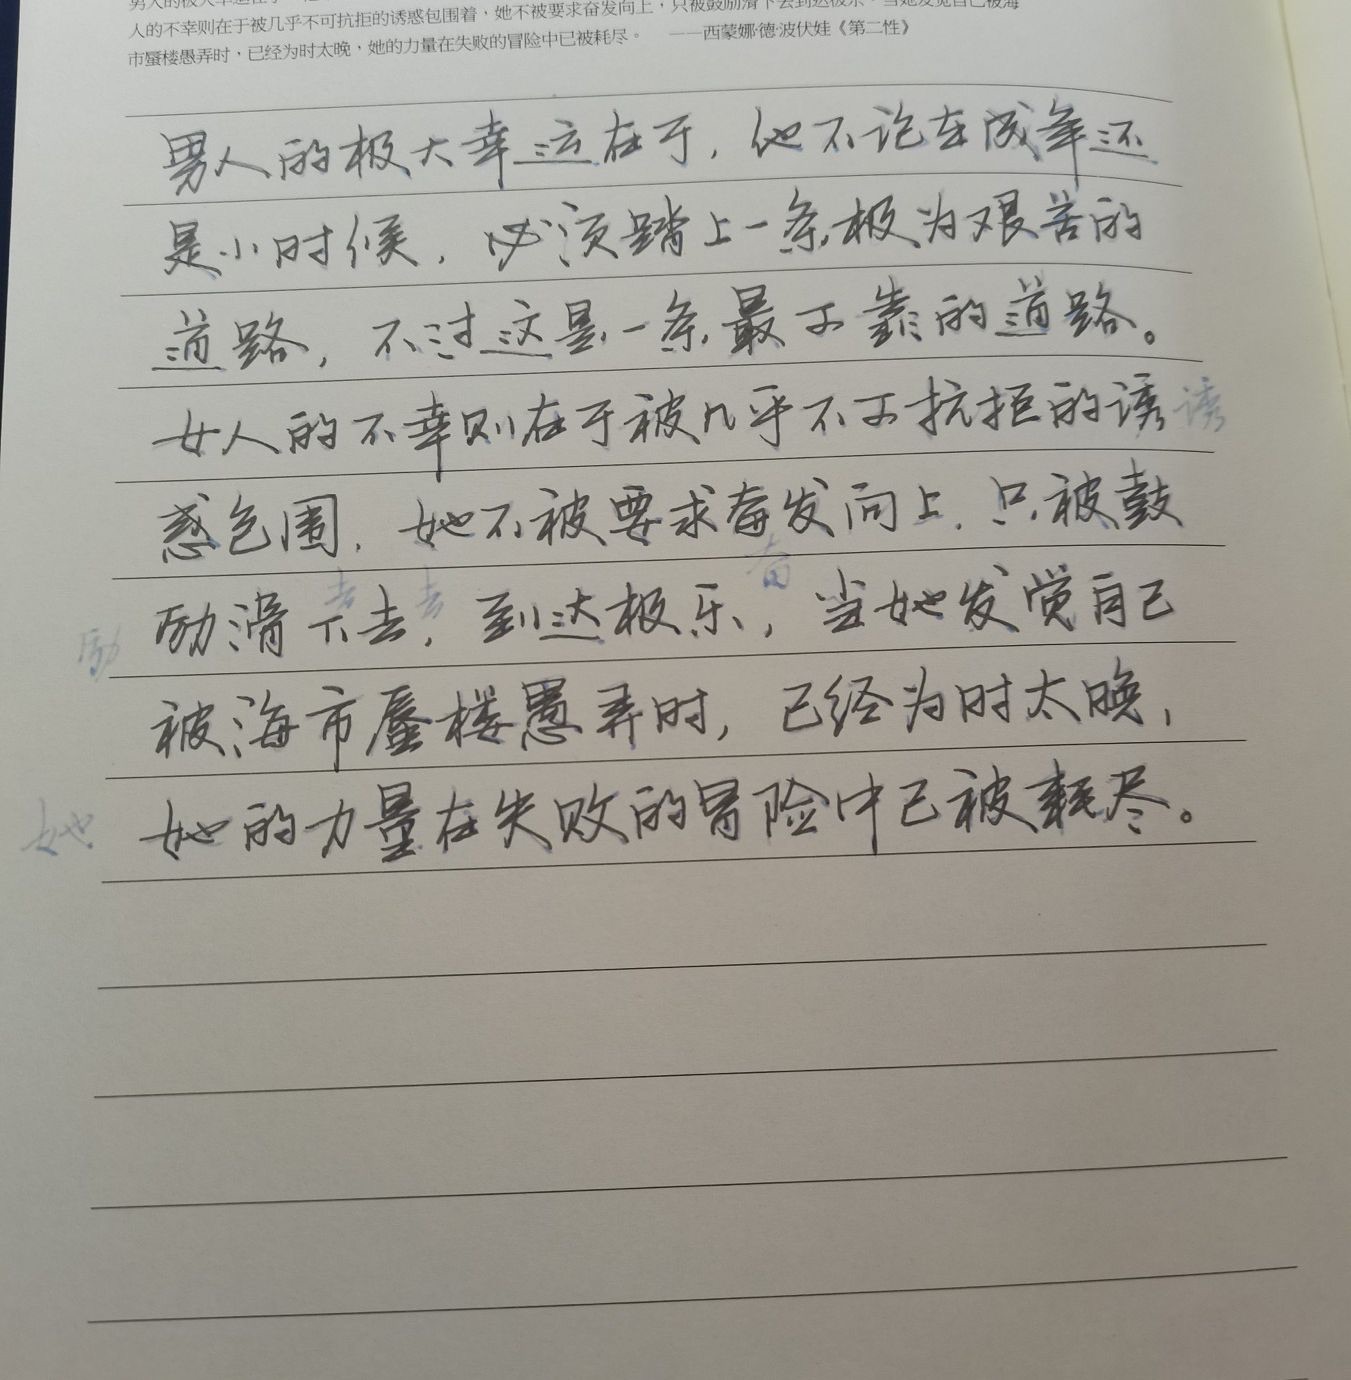 人的不幸则在于被几乎不可抗拒的诱惑包围着，她不被要求奋发向上，只被鼓励滑下去到达极乐。当她发觉自己被海
市蜃楼愚弄时，已经为时太晚，她的力量在失败的冒险中已被耗尽。 ——西蒙娜·德·波伏娃《第二性》
男人的极大幸运在于，他不论在成年还
是小时候，必须踏上一条极为艰苦的
道路，不过这是一条最可靠的道路。
女人的不幸则在于被几乎不可抗拒的诱 诱
惑包围，她不被要求奋发向上，只被鼓
奋
去 去
励 励滑下去，到达极乐，当她发觉自己
被海市蜃楼愚弄时，已经为时太晚，
她 她的力量在失败的冒险中已被耗尽。